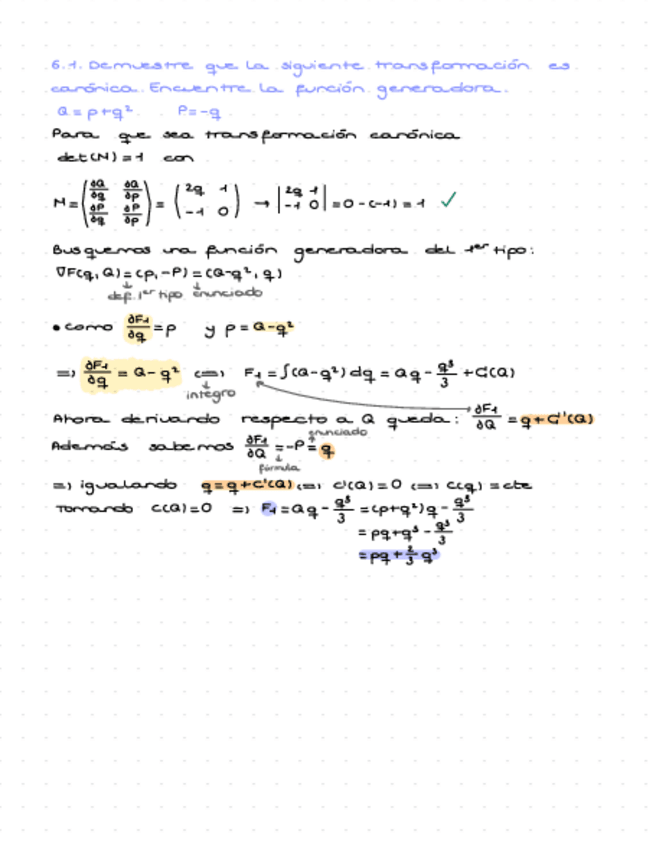 6.1. Demuestre que la siguiente transformación es
canónica. Encuentre la función generadora.
Q = p+q² P=-q
Para que sea transformación canónica
det(M) = 1 con
M = (∂Q/∂q ∂Q/∂p; ∂P/∂q ∂P/∂p) = (2q 1; -1 0) → |2q 1; -1 0| = 0 - (-1) = 1 ✓
Busquemos una función generadora del 1er tipo:
∇F(q, Q) = (p, -P) = (Q-q², q)
↓ def. 1er tipo ↓ enunciado
• como ∂F1/∂q = p y p = Q-q²
=> ∂F1/∂q = Q-q² <=> F1 = ∫(Q-q²) dq = Qq - q³/3 + C(Q)
↓ integro
Ahora derivando respecto a Q queda: ∂F1/∂Q = q + C'(Q)
enunciado
Además sabemos ∂F1/∂Q = -P = q
↓ fórmula
=> igualando q = q + C'(Q) <=> C'(Q) = 0 <=> C(q) = cte
Tomando C(Q) = 0 => F1 = Qq - q³/3 = (p+q²)q - q³/3
= pq + q³ - q³/3
= pq + 2/3 q³